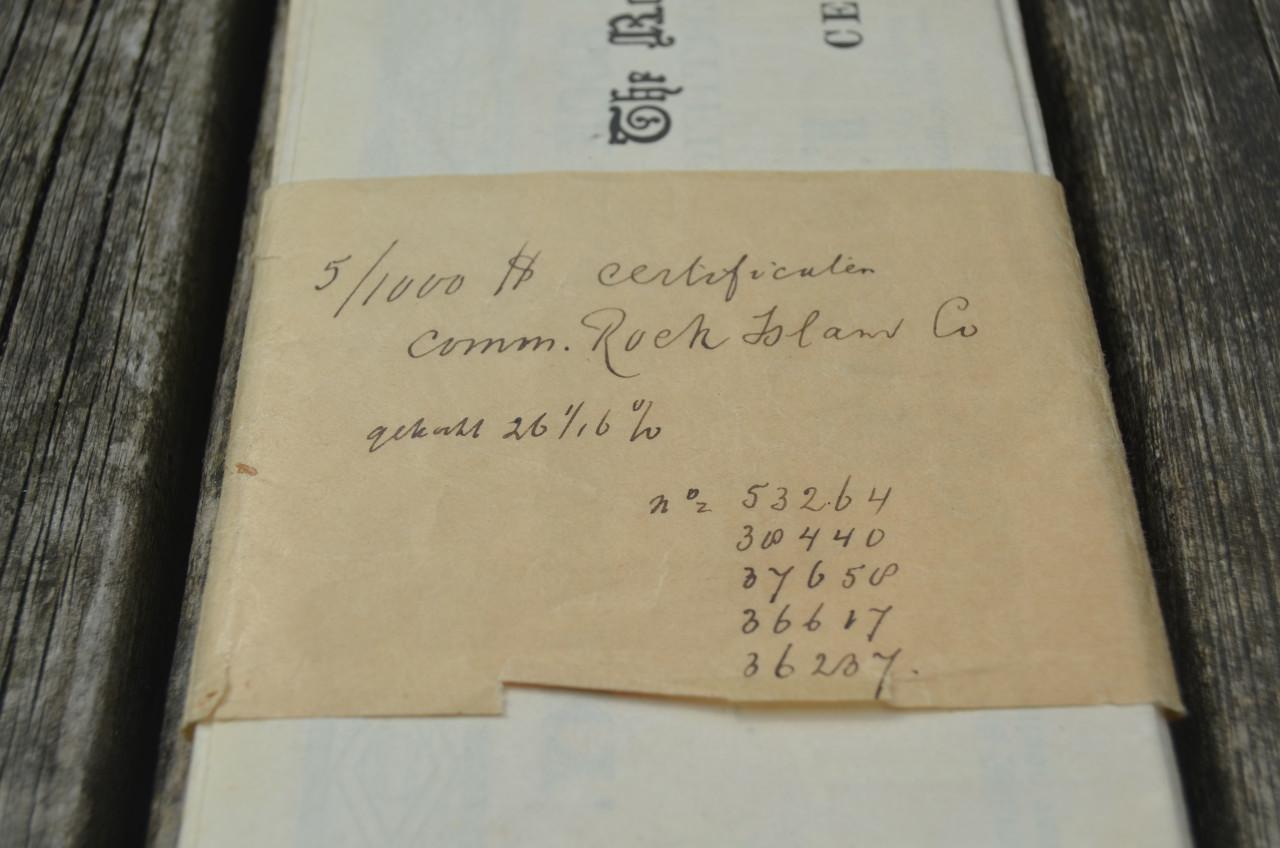 The
CE
5/1000 $ certificaten
comm. Rock Island Co
gekocht 26 1/16 %
nos 53264
38440
37658
36617
36237.